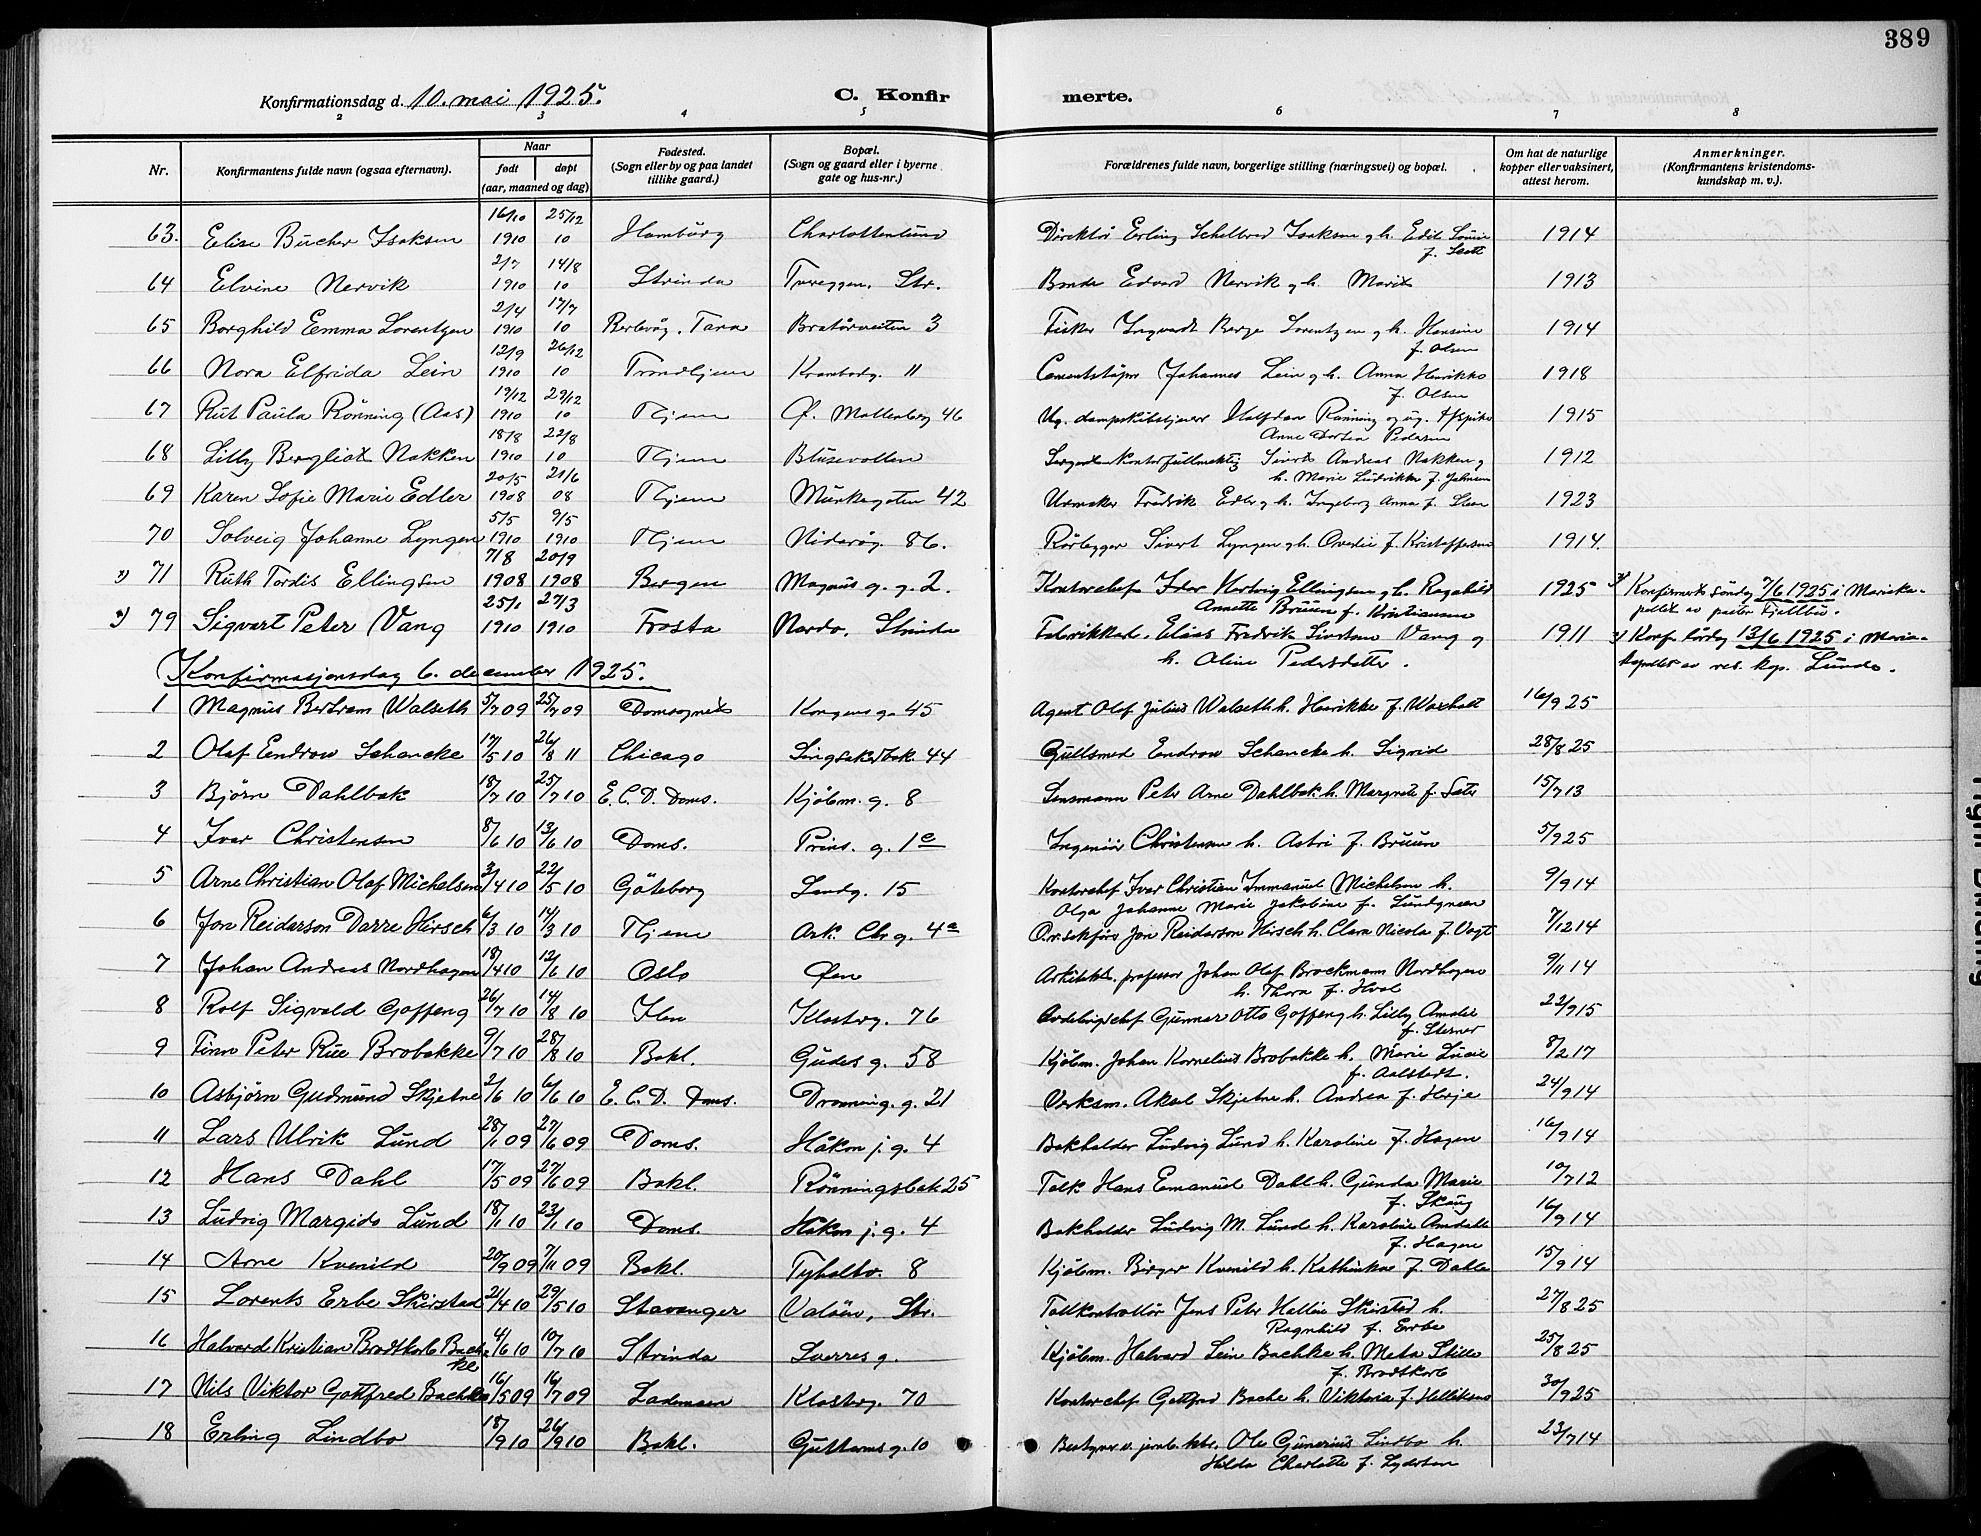 389
Konfirmationsdag d. 10. mai 1925. C. Konfirmerte.
2 3 4 5 6 7 8
Nr. Konfirmantens fulde navn (ogsaa efternavn). Naar født døpt (aar, maaned og dag) Fødested. (Sogn eller by og paa landet tillike gaard.) Bopæl. (Sogn og gaard eller i byerne gate og hus-nr.) Forældrenes fulde navn, borgerlige stilling (næringsvei) og bopæl. Om hat de naturlige kopper eller vaksinert, attest herom. Anmerkninger. (Konfirmantens kristendomskundskap m. v.).
63. Elise Bucher Isaksen 16/10 1910 25/12 10 Hamburg Charlottenlund Direktør Erling Isaksen g h. 1914
64 Elvine Nervik 2/7 1910 14/8 10 Strinda Str. Bonde Edvard Nervik g h. Marit 1913
65 Borghild Emma Lorentzen 2/4 1910 17/7 10 Berlevåg, Tana Bratørveiten 3 Fisker Ingvardt Berge Lorentzen g h. Hansine
f. Olsen 1914
66 Nora Elfrida Lein 12/9 1910 26/12 10 Trondhjem Krambodg. 11 Johannes Lein g h. Anna Henrikke
f. Olsen 1918
67 Rut Paula Rönning (Aas) 19/12 1910 29/12 10 Thjem Ø. Mollenberg 46 Ug. Halfdan Rønning og ug.
Anne Dortea Pedersen 1915
68 Lilly Bergliot Nakken 18/8 1910 22/8 10 Thjem Blusevollen Sivert Andreas Nakken g
h. Marie Ludvikke f. 1912
69 Karen Sofie Marie Edler 20/5 1908 21/6 08 Thjem Munkegaten 42 Urmaker Fredrik Edler g h. Ingeborg Anna f. Steen 1923
70 Solveig Johanne Lyngen 5/5 1910 9/5 1910 Thjem 86. Rørlegger Sivert Lyngen g h. f. Kristoffersen 1914.
71 Ruth Tordis Ellingsen 7/8 1908 20/9 1908 Bergen Magnus g. 2. Kontorchef Hartvig Ellingsen g h. Ragnhild
Annette Bruun f. Kristiansen 1925 Konfirmert søndag 7/6 1925 i Marieka-
pellet av pastor
79 Sigvart Peter Vang 25/1 1910 27/3 1910 Frosta Nardo, Strinda Elias Fredrik Sivertsen Vang g
h. Oline Pedersdatter. 1911 Konf. lørdag 13/6 1925 i Maria-
kapellet av res. kap. Lunde.
Konfirmasjonsdag 6. december 1925.
1 Magnus Bertram Walseth 5/7 09 25/7 09 Domsognet Kongens g. 45 Agent Olaf Julius Walseth h. Henrikke f. Waxholt 16/9 25
2 Olaf Endrow Schancke 17/5 10 26/8 11 Chicago Singsakerbak. 44 Gullsmed Endrow Schancke h. Sigrid 28/8 25
3 Bjørn Dahlbak 18/7 10 25/7 10 E. C. D. Doms. Kjøbm. g. 8 Lensmann Peter Arne Dahlbak h. Margrete f. Sæter 15/7 13
4 Ivar Christensen 8/6 10 13/6 10 Doms. Prins. g. 1c Ingeniør Christensen h. Astri f. Bruun 5/9 25
5 Arne Christian Olaf Michelsen 3/4 10 22/5 10 Göteborg Sandg. 15 Kontorchef Ivar Christian Immanuel Michelsen h.
Olga Johanne Marie Jakobine f. Lundgreen 9/9 14
6 Jon Reidarson Darre Hirsch 6/3 10 14/3 10 Thjem Ark. Chr. g. 4a O.r.sakfører Jon Reidarson Hirsch h. Clara Nicola f. Vogt 7/12 14
7 Johan Andreas Nordhagen 18/4 10 12/6 10 Oslo Øen Arkitekt, professor Johan Olaf Brockmann Nordhagen
h. Thora f. Hval 9/11 14
8 Rolf Sigvald Goffeng 26/7 10 14/8 10 Ilen Klosterg. 76 Avdelingschef Gunnar Otto Goffeng h. Lilly Amalie
f. Sterner 22/9 15
9 Finn Peter Rue Brobakke 9/7 10 28/8 10 Bakl. Gudes g. 58 Kjøbm. Johan Kornelius Brobakke h. Marie Lucie
f. Aalstedt. 8/2 17
10 Asbjørn Gudmund Skjetne 2/6 10 6/6 10 E. C. D. Doms. Dronning. g. 21 Verksm. Aksel Skjetne h. Andrea f. Herje 24/9 14
11 Lars Ulrik Lund 28/1 09 27/6 09 Doms. Håkon j. g. 4 Bokholder Ludvig Lund h. Karoline f. Hagen 16/9 14
12 Hans Dahl 17/5 09 27/6 09 Bakl. Rönningsbak 25 Tolk Hans Emanuel Dahl h. Gunda Marie
f. Skaug 10/7 12
13 Ludvig Margido Lund 18/1 10 23/1 10 Doms. Håkon j. g. 4 Bokholder Ludvig M. Lund h. Karoline
f. Hagen 16/9 14
14 Arne Kvenild 20/9 09 7/11 09 Bakl. Tyholtv. 8 Kjøbm. Birger Kvenild h. Kathinka f. Dahle 15/9 14
15 Lorents Erbe Skirstad 21/4 10 29/5 10 Stavanger Valöen, Str. Tollkontrollør Jens Peter Skirstad h.
Ragnhild f. Erbe 27/8 25
16 Halvard Kristian Brodtkorb Bach-
ke 4/6 10 10/7 10 Strinda Sverres g. Kjøbm. Halvard Lein Bachke h. Meta Stille
f. Brodtkorb 25/8 25
17 Nils Viktor Gottfred Bachke 16/5 09 16/7 09 Lademoen Klosterg. 70 Kontorchef Gottfred Bache h. Viktoria f. 30/9 25
18 Erling Lindbo 18/9 10 26/9 10 Bakl. Guttorms g. 10 Bestyrer v. Ole Gunerius Lindbo h.
Hilda Charlotte f. Lydersen 23/7 14